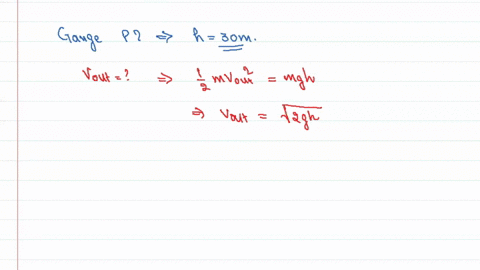 Gange P? ⇒ h = 30m.
Vout = ? ⇒ 1/2 mVout² = mgh
⇒ Vout = √2gh